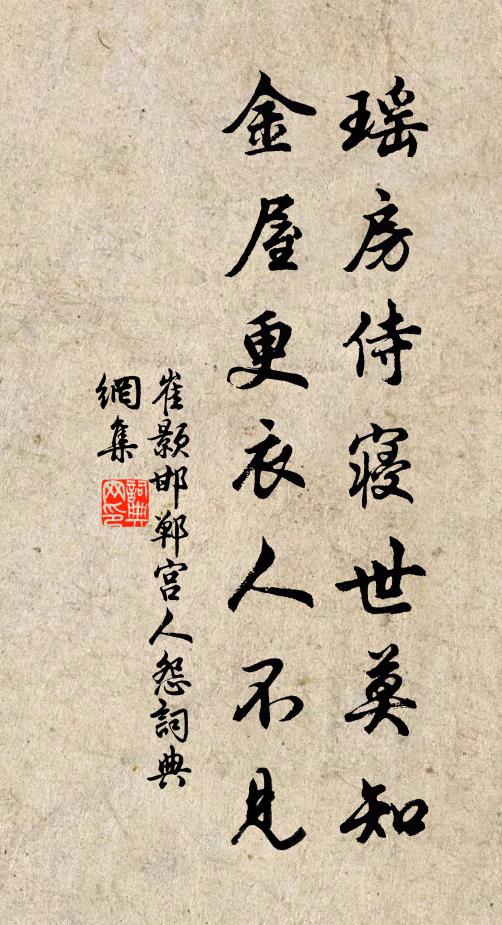 瑶房侍寝世莫知
金屋更衣人不見
崔颢邯郸宫人怨詞典
網集
詞典
网印